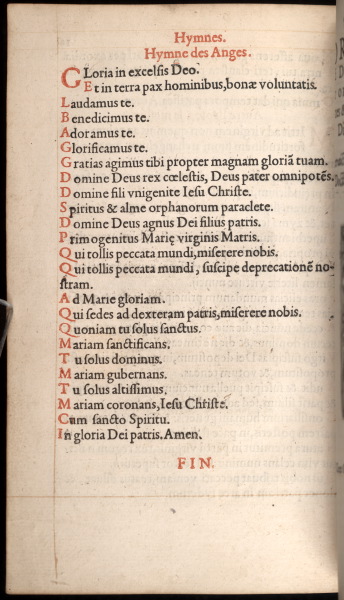 Hymnes.
Hymne des Anges.
GLoria in excelsis Deo.
Et in terra pax hominibus, bonæ voluntatis.
Laudamus te.
Benedicimus te.
Adoramus te.
Glorificamus te.
Gratias agimus tibi propter magnam gloriã tuam.
Domine Deus rex cœlestis, Deus pater omnipotẽs.
Domine fili vnigenite Iesu Christe.
Spiritus & alme orphanorum paraclete.
Domine Deus agnus Dei filius patris.
Primogenitus Marię virginis Matris.
Qui tollis peccata mundi, miserere nobis.
Qui tollis peccata mundi, suscipe deprecationẽ no-
stram.
Ad Marie gloriam.
Qui sedes ad dexteram patris, miserere nobis.
Quoniam tu solus sanctus.
Mariam sanctificans.
Tu solus dominus.
Mariam gubernans.
Tu solus altissimus.
Mariam coronans, Iesu Christe.
Cum sancto Spiritu.
In gloria Dei patris. Amen.
FIN.